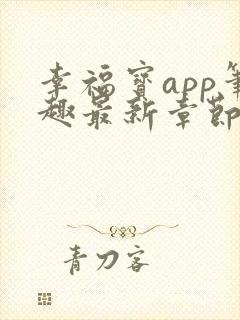 幸福宝app笔
趣最新章节
青刀客